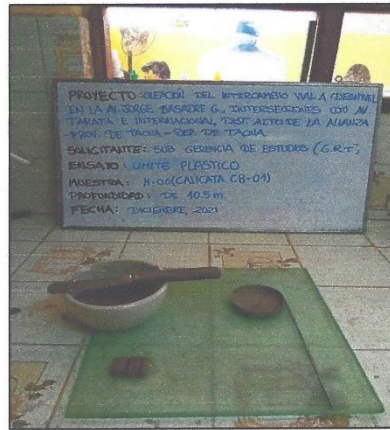 PROYECTO: CREACIÓN DEL INTERCAMBIO VIAL A DESNIVEL
EN LA AV. JORGE BASADRE G., INTERSECCIONES CON AV.
TARATA E INTERNACIONAL, DIST. ALTO DE LA ALIANZA
-PROV. DE TACNA - DEP. DE TACNA.
SOLICITANTE: SUB GERENCIA DE ESTUDIOS (G.R.T.)
ENSAYO: LIMITE PLASTICO
MUESTRA: M-06 (CALICATA CB-01)
PROFUNDIDAD: DE 10.5 m.
FECHA: DICIEMBRE, 2021